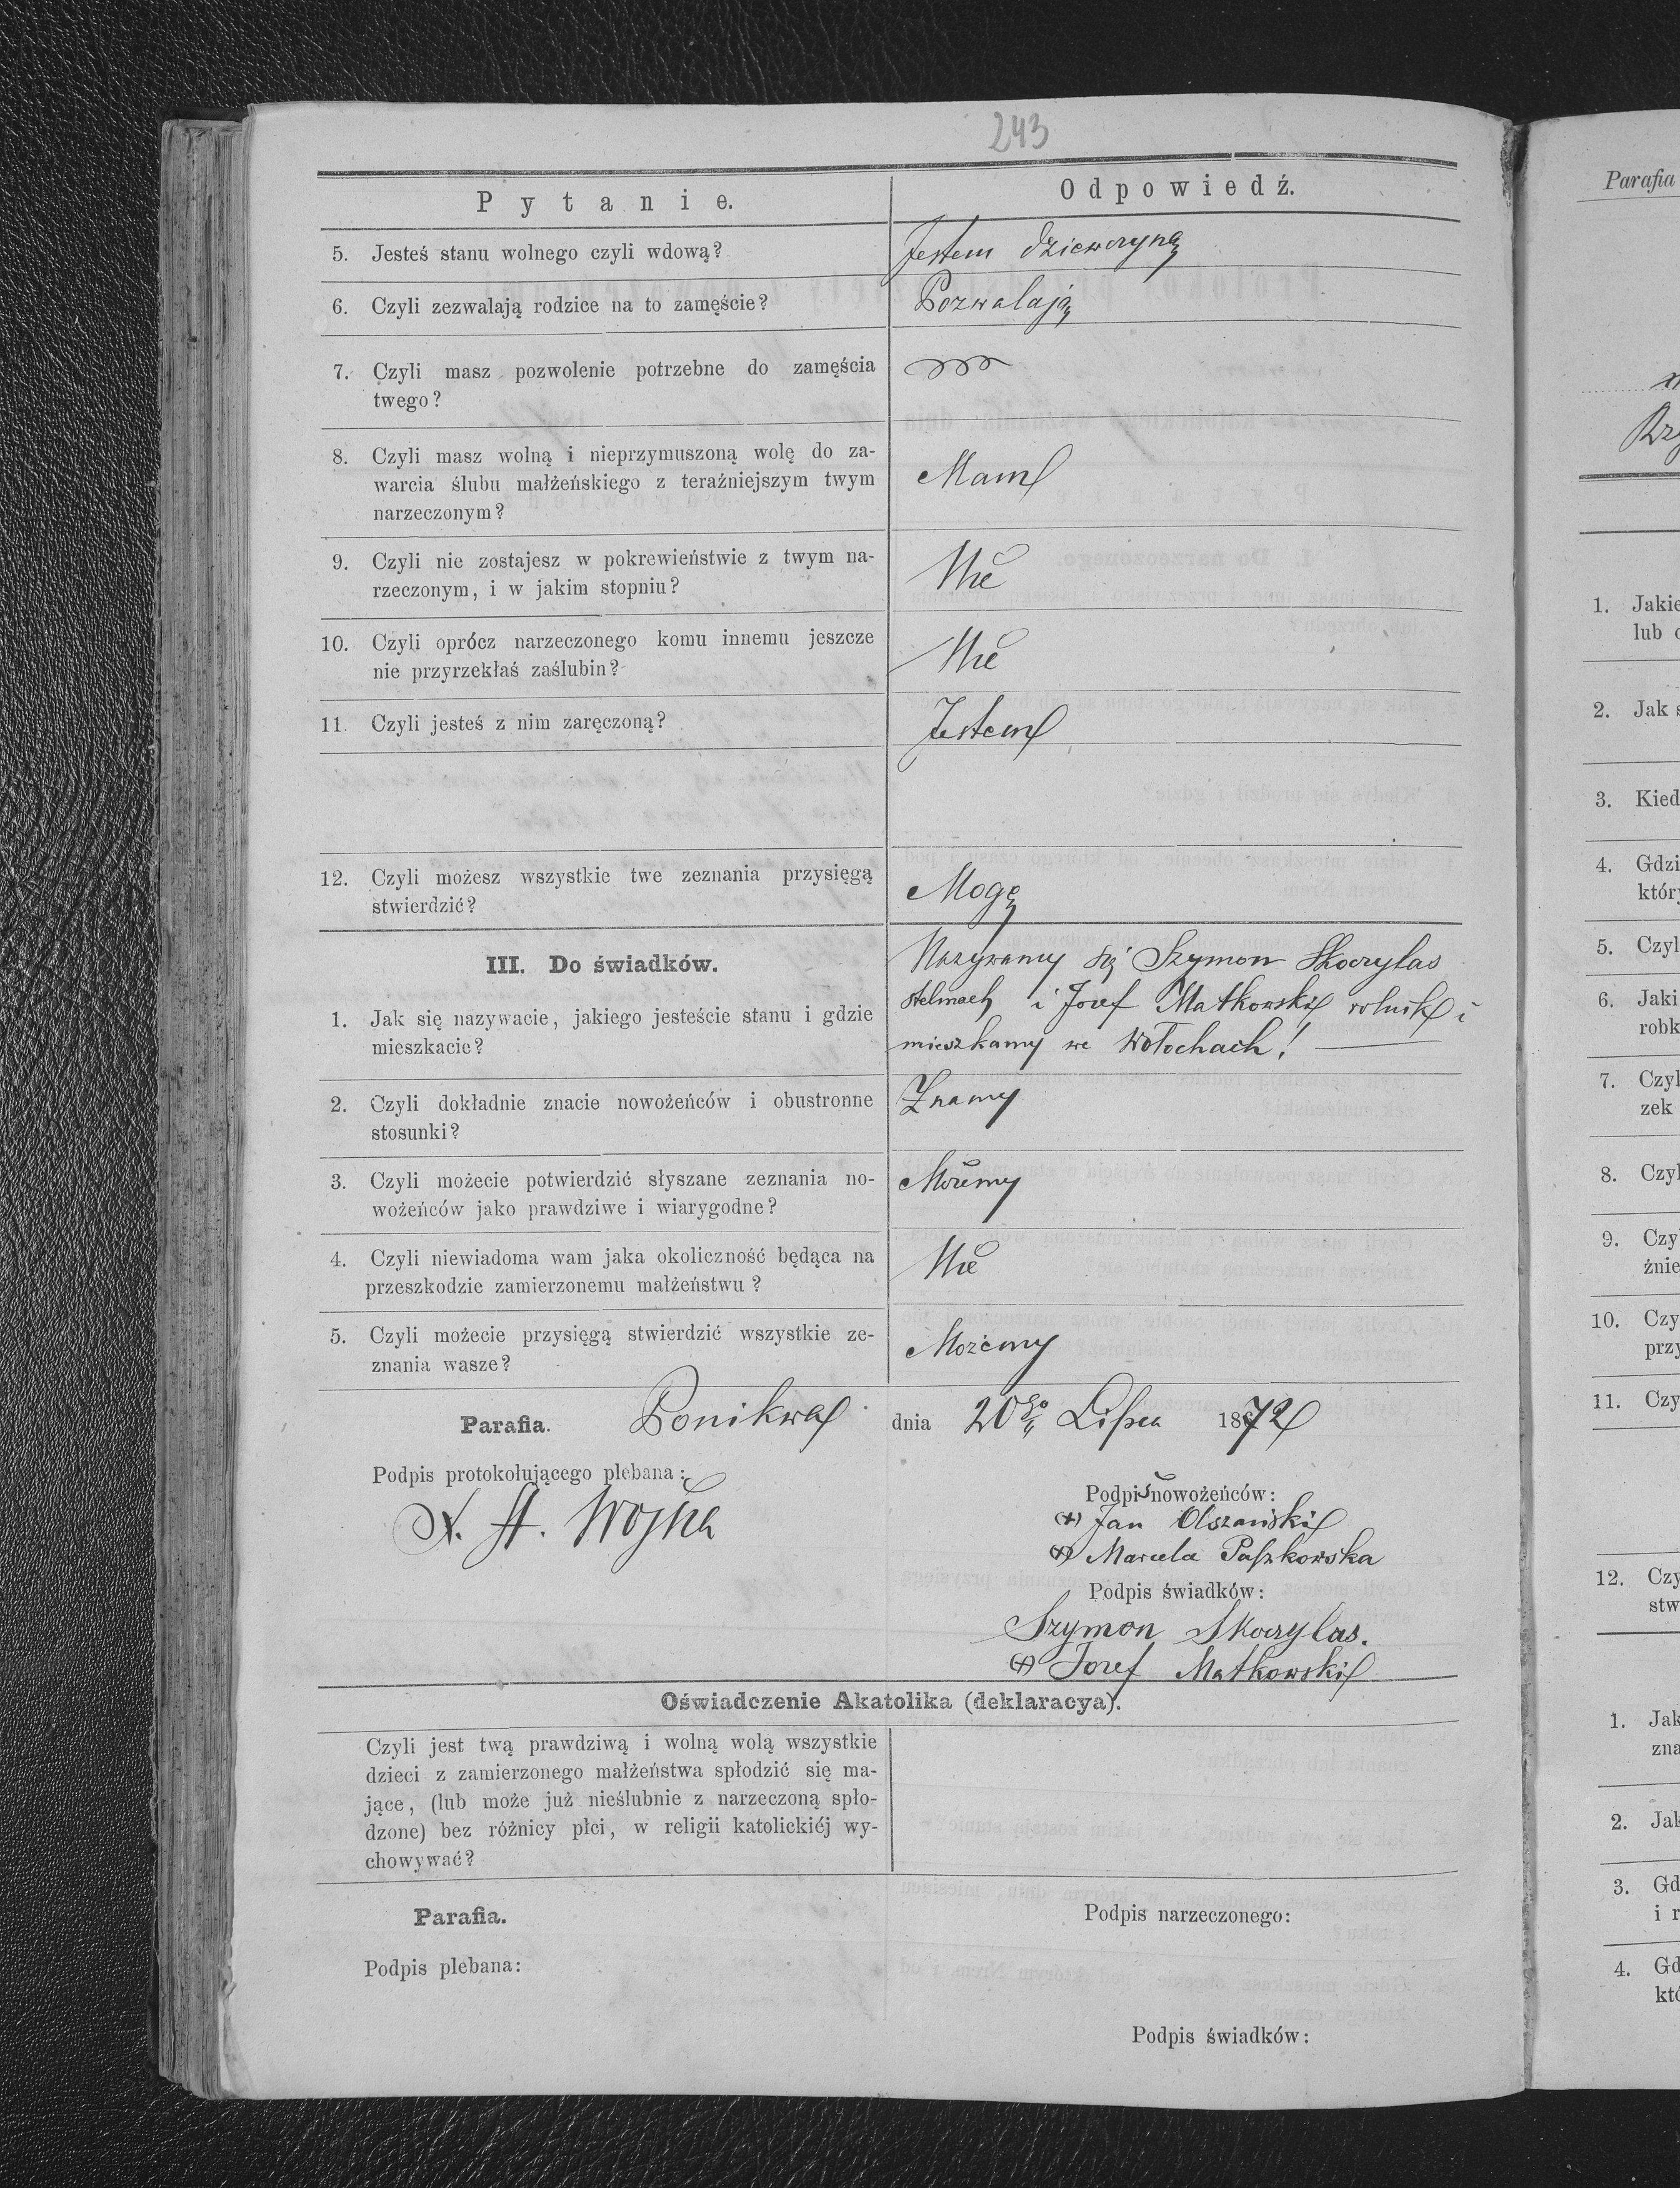 243
Pytanie.
Odpowiedź.
5. Jesteś stanu wolnego czyli wdową?
Jestem dziewczyną
6. Czyli zezwalają rodzice na to zamęście?
Pozwalają
7. Czyli masz pozwolenie potrzebne do zamęścia
twego?
8. Czyli masz wolną i nieprzymuszoną wolę do za-
warcia ślubu małżeńskiego z teraźniejszym twym
narzeczonym?
Mam
9. Czyli nie zostajesz w pokrewieństwie z twym na-
rzeczonym, i w jakim stopniu?
Nie
10. Czyli oprócz narzeczonego komu innemu jeszcze
nie przyrzekłaś zaślubin?
Nie
11. Czyli jesteś z nim zaręczoną?
Jestem
12. Czyli możesz wszystkie twe zeznania przysięgą
stwierdzić?
Mogę
III. Do świadków.
1. Jak się nazywacie, jakiego jesteście stanu i gdzie
mieszkacie?
Nazywamy się Szymon Skoczylas
stelmach i Jozef Matkowski rolnik i
mieszkamy we Wołochach!
2. Czyli dokładnie znacie nowożeńców i obustronne
stosunki?
Znamy
3. Czyli możecie potwierdzić słyszane zeznania no-
wożeńców jako prawdziwe i wiarygodne?
Możemy
4. Czyli niewiadoma wam jaka okoliczność będąca na
przeszkodzie zamierzonemu małżeństwu?
Nie
5. Czyli możecie przysięgą stwierdzić wszystkie ze-
znania wasze?
Możemy
Parafia. Ponikwa dnia 20go Lipca 1872
Podpis protokołującego plebana:
X. A. Wojna
Podpis nowożeńców:
(+) Jan Olszański
(+) Marcela Paszkowska
Podpis świadków:
Szymon Skoczylas.
(+) Jozef Matkowski
Oświadczenie Akatolika (deklaracya).
Czyli jest twą prawdziwą i wolną wolą wszystkie
dzieci z zamierzonego małżeństwa spłodzić się ma-
jące, (lub może już nieślubnie z narzeczoną spło-
dzone) bez różnicy płci, w religii katolickiéj wy-
chowywać?
Parafia.
Podpis narzeczonego:
Podpis plebana:
Podpis świadków:
Parafia
1. Jakie
lub
2. Jak
3. Kied
4. Gdzi
któr
5. Czyl
6. Jaki
robk
7. Czyl
zek
8. Czyl
9. Czy
źnie
10. Czy
przy
11. Czy
12. Czy
stw
1. Jak
zna
2. Jak
3. Gd
i r
4. Gd
któ